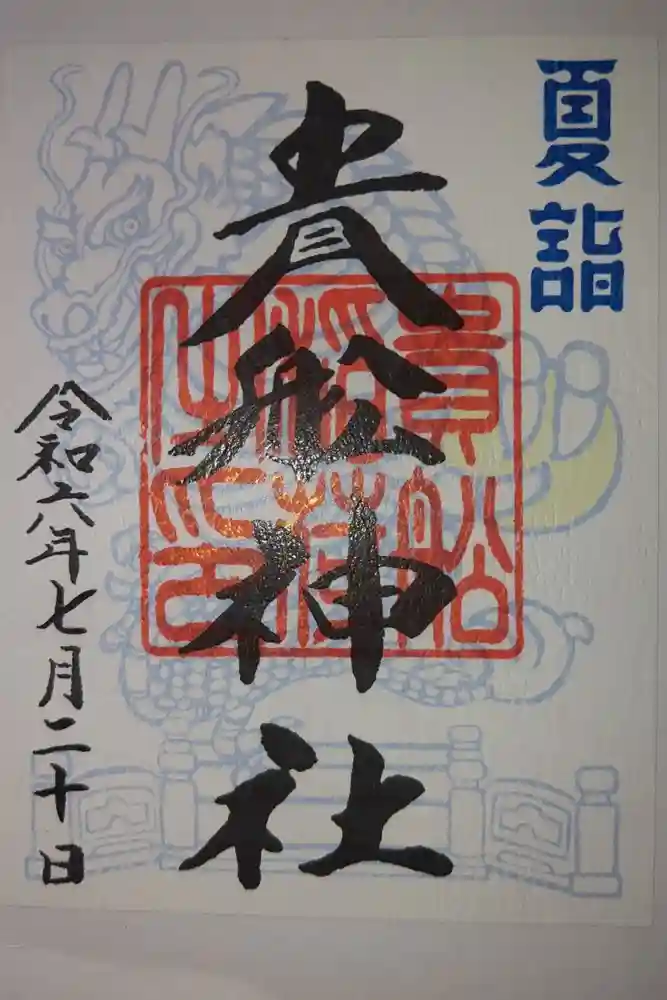 夏詣
貴船神社
貴船
稲荷
之印
令和六年七月二十日